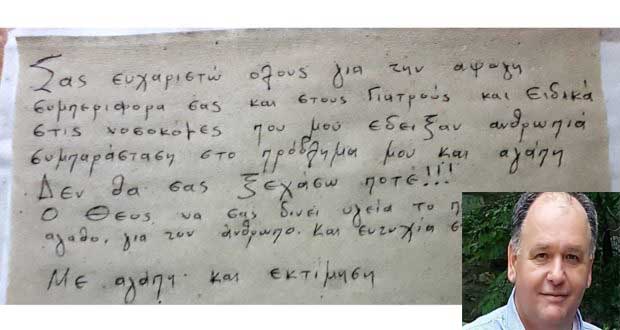 Σας ευχαριστώ ολους για την αψογη
συμπεριφορα σας και στους Γιατρούς και Ειδικά
στις νοσοκόμες που μού εδειξαν ανθρωπιά
συμπαράσταση στο πρόβλημα μου και αγάπη
Δεν θα σας ξεχάσω ποτέ!!!
Ο Θεος να σας δινει υγεία το
αγαθο, για τον άνθρωπο. Και ευτυχία
Με αγάπη και εκτίμηση